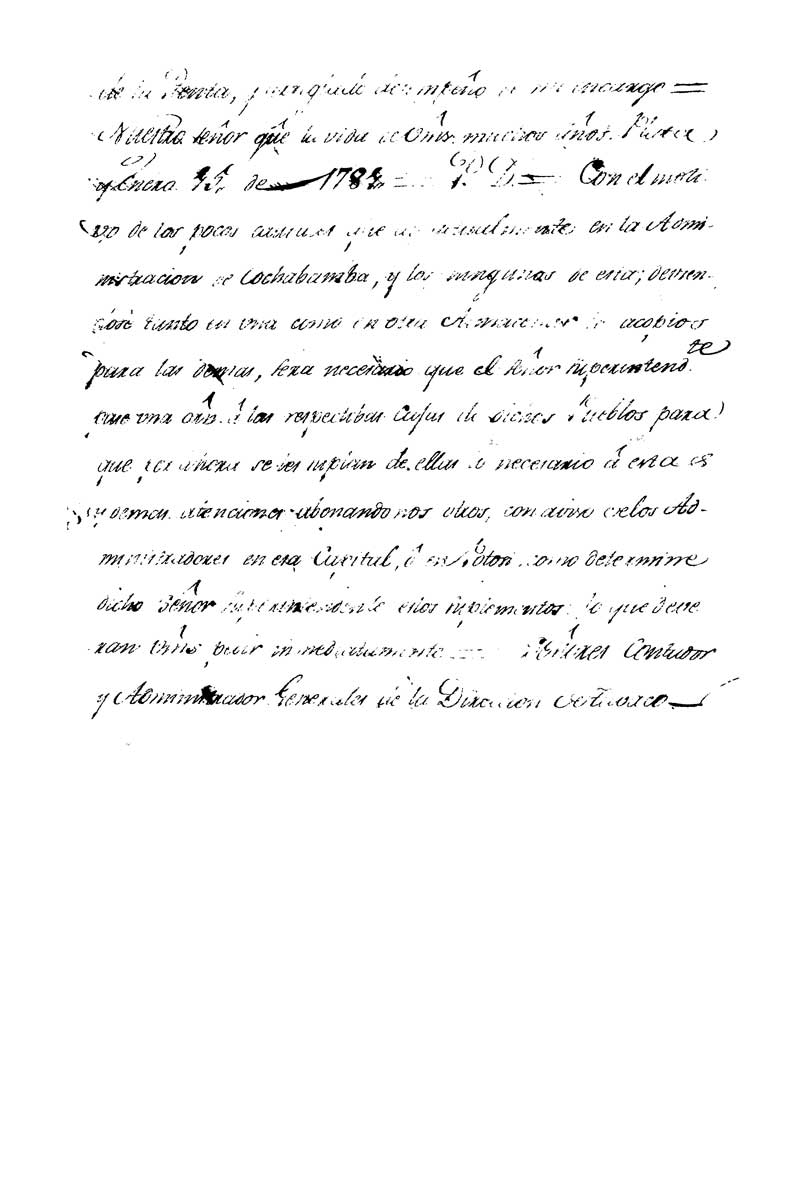 de la Renta, para desempeño de mi encargo =
Nuestro señor gûe la vida de Vms. muchos años. Plata
y Enero 15, de 1782 = P. D. = Con el moti-
vo de los pocos que actualmente en la Admi-
nistracion de Cochabamba, y los ningunos de esta; devien-
dose tanto en una como en otra Almacenar acopios
para las demas, sera necesario que el señor superintend.te
una orn. â las respectibas Cajas de dichos Pueblos para
que por ahora se suplan de ellas lo necesario â esta
y demas atenciones abonandonos otros, con aviso de los Ad-
ministradores en esa Capital, ô en Potosi como determine
dicho Señor Superintendente estos suplementos: lo que deve-
ran Vms pedir immediatamente = Señores Contador
y Administrador Generales de la Direccion de Tavaco